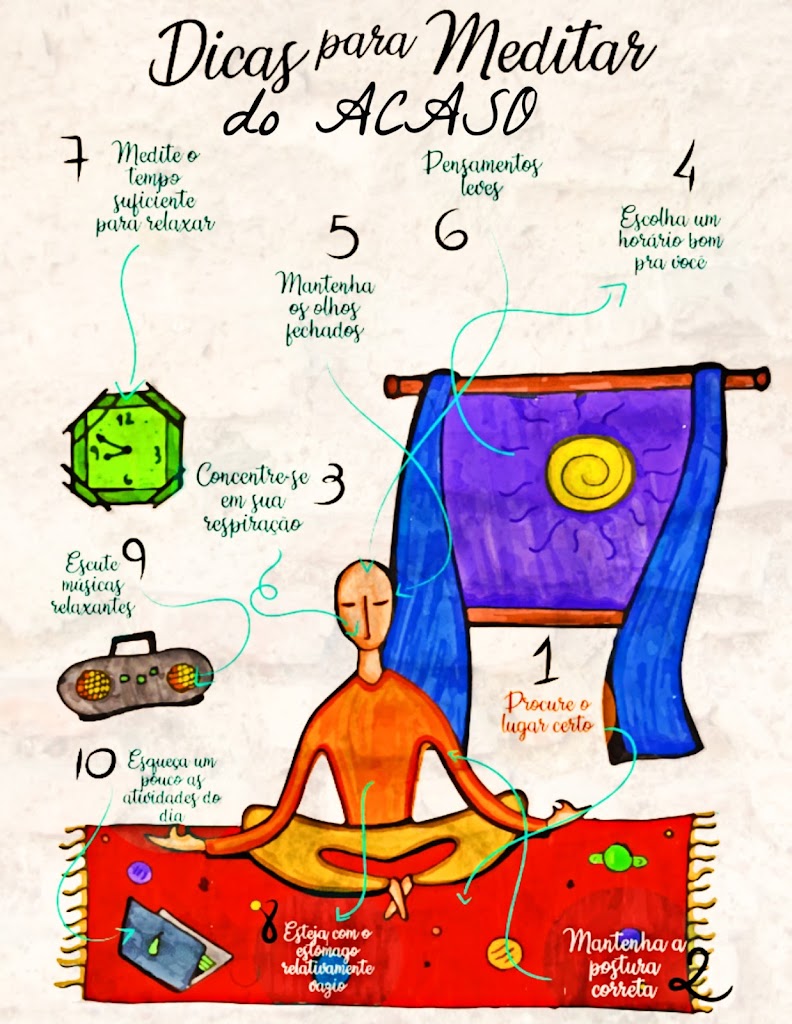 Dicas para Meditar
do ACASO
7
Medite o
tempo
suficiente
para relaxar
Pensamentos
leves
6
4
Escolha um
horário bom
pra você
5
Mantenha
os olhos
fechados
12
9
3
6
Concentre-se
em sua
respiração
3
9
Escute
músicas
relaxantes
1
Procure o
lugar certo
10
Esqueça um
pouco as
atividades do
dia
8
Esteja com o
estômago
relativamente
vazio
Mantenha a
postura
correta
2